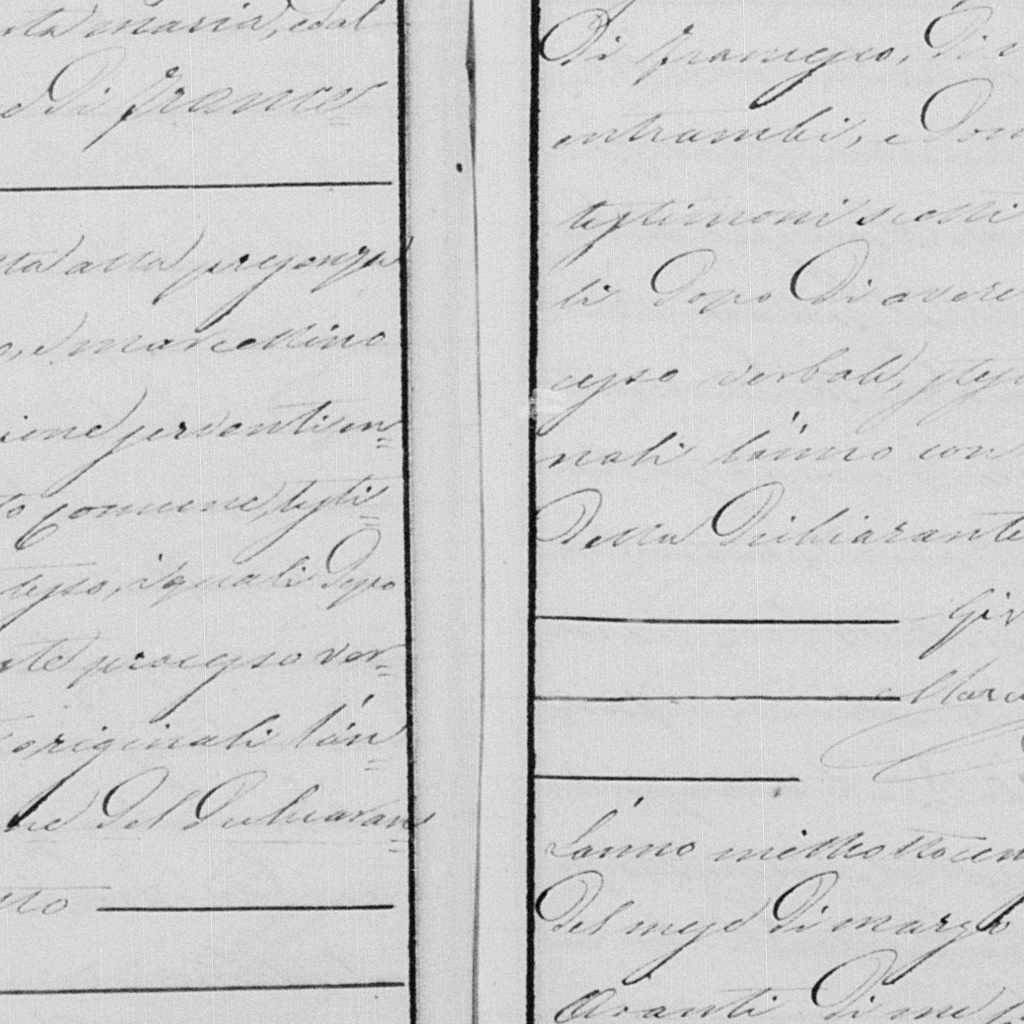 maria, e dal
e Di Frances=
ta alla presenza
o, e marcellino
ione presenti en=
to Comune, testi=
tesso, i quali Dopo
nte processo ver=
originali l'an=
ne del Dichiaran=
tto
Di Francesco, Di
entrambi, e Dom
testimoni scelti
li Dopo Di avere
cesso verbale, stes
nali l'anno con
Della Dichiarante
Gir
Marc
L'anno mille ottocen
Del mese Di marzo
Avanti Di me